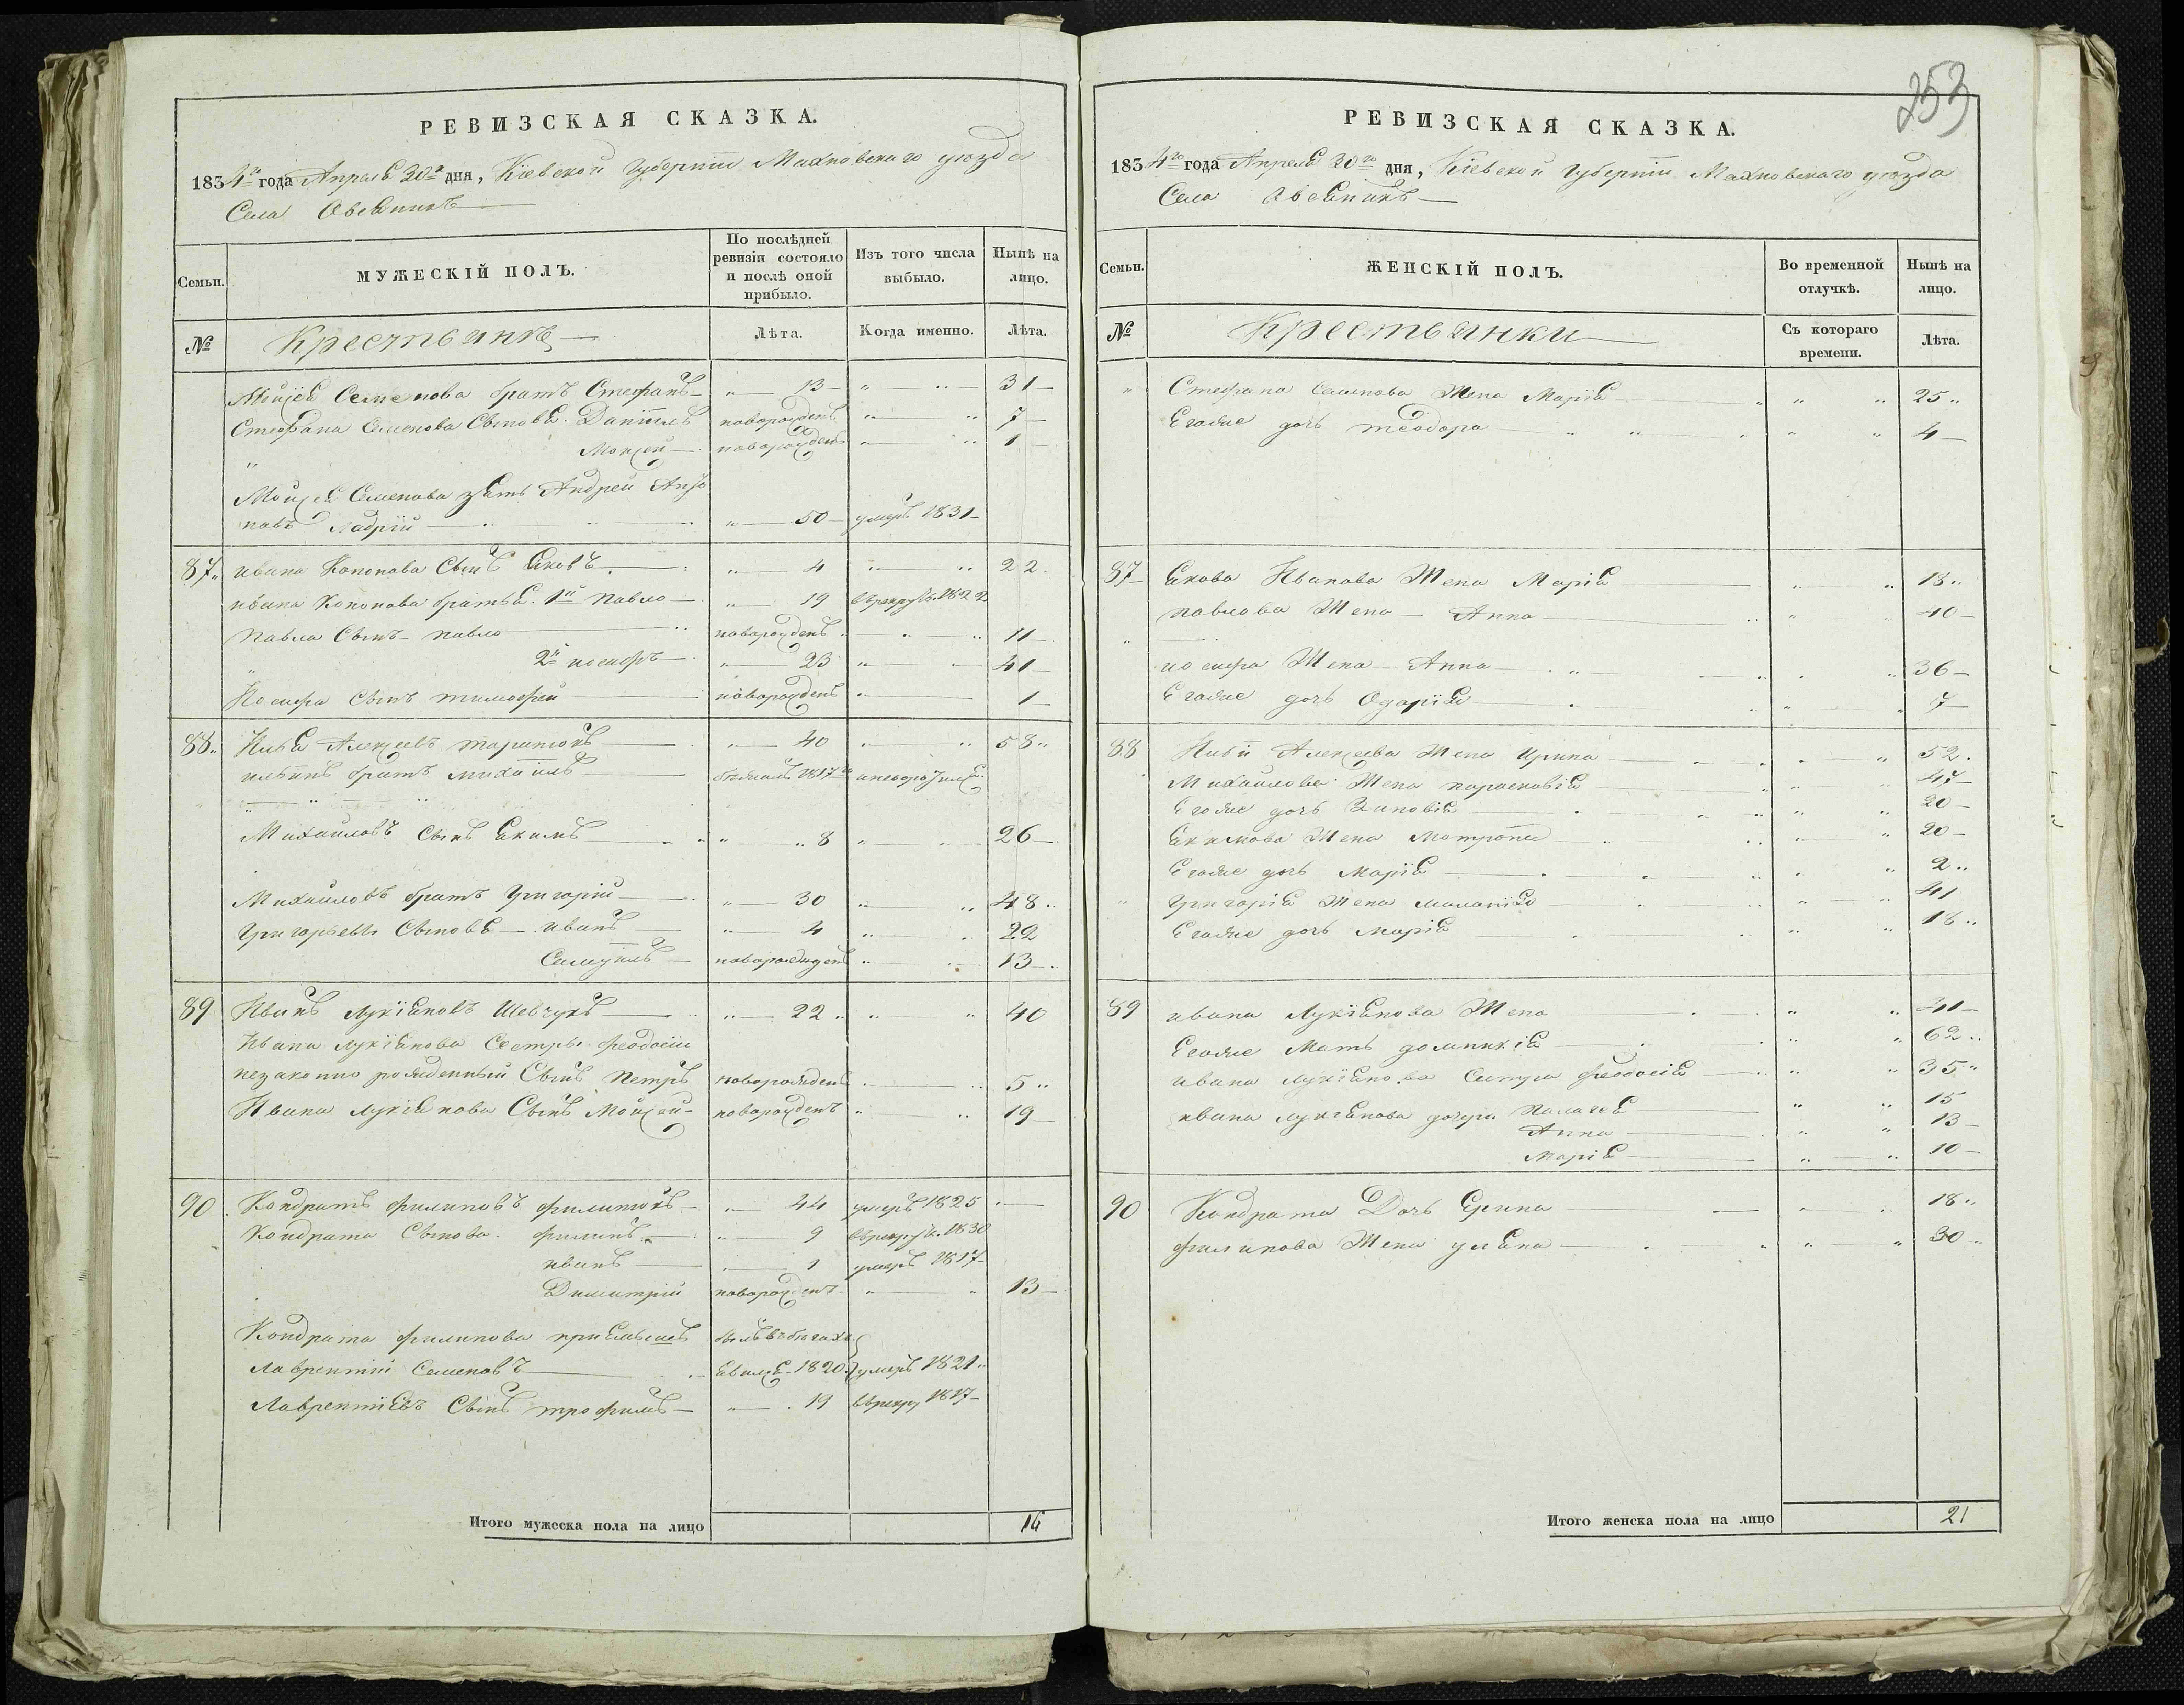 РЕВИЗСКАЯ СКАЗКА.
1834го года Апреля 30го дня, Кіевской Губерніи Махновскаго уезда
Села Овсяникъ
Семьи. МУЖЕСКІЙ ПОЛЪ. По послѣдней ревизіи состояло и послѣ оной прибыло. Изъ того числа выбыло. Нынѣ на лицо.
№ Крестьянъ Лѣта. Когда именно. Лѣта.
Мойсея Семенова братъ Стефанъ 13 31
Стефана Семенова Сыновья Даніилъ новорожденъ 7
Мойсей новорожденъ 1
Мойсея Семенова зять Андрей
50 умеръ 1831
87 ивана Кононова Сынъ Яковъ 4 22
ивана Кононова братья 1й павло 19 врекруты 1822
павла Сынъ павло новорожденъ 11
2й иосифъ 23 41
Иосифа Сынъ тимофей новорожденъ 1
88 Илья Алексеевъ 40 58
ильинъ братъ михаилъ бежалъ 1817го
Михаиловъ Сынъ Якимъ 8 26
Михаиловъ братъ Григорій 30 48
Григорьевы Сыновья иванъ 4 22
Самуилъ новорожденъ 13
89 Иванъ Лукіяновъ Шевчукъ 22 40
Ивана Лукіянова Сестры феодосіи
незаконно рожденный Сынъ Петръ новорожденъ 5
Ивана Лукіянова Сынъ Мойсей новорожденъ 19
90 Кондратъ филиповъ 44 умеръ 1825
Кондрата Сынова филипъ 9 врекруты 1830
иванъ 1 умеръ 1817
Димитрій новорожденъ 13
Кондрата филипова пріемышъ былъ въ бегахъ
Лаврентій Семеновъ явился 1820 умеръ 1821
Лаврентіевъ Сынъ трофимъ 19 врекру 1817
Итого мужеска пола на лицо 16
253
РЕВИЗСКАЯ СКАЗКА.
1834го года Апреля 30го дня, Кіевской Губерніи Махновскаго уезда
Села Овсяникъ
Семьи. ЖЕНСКІЙ ПОЛЪ. Во временной отлучкѣ. Нынѣ на лицо.
№ Крестьянки Съ котораго времени. Лѣта.
Стефана Семенова Жена Марія 25
Егоже дочь теодора 4
87 Якова Иванова Жена Марія 18
павлова Жена Анна 40
иосифа Жена Анна 36
Егоже дочь Одарія 7
88 Ильи Алексеева Жена Ирина 52
Михайлова Жена парасковія 47
Егоже дочь Зиновія 20
Якимова Жена Мотрона 20
Егоже дочь Марія 2
Григорія Жена маланія 41
Егоже дочь марія 18
89 ивана Лукіянова Жена 41
Егоже Мать доминикія 62
ивана Лукіянова Сестра феодосія 35
ивана Лукіянова дочери Палагея 15
Анна 13
Марія 10
90 Кондрата Дочь Ерина 18
филипова Жена уляна 30
Итого женска пола на лицо 21